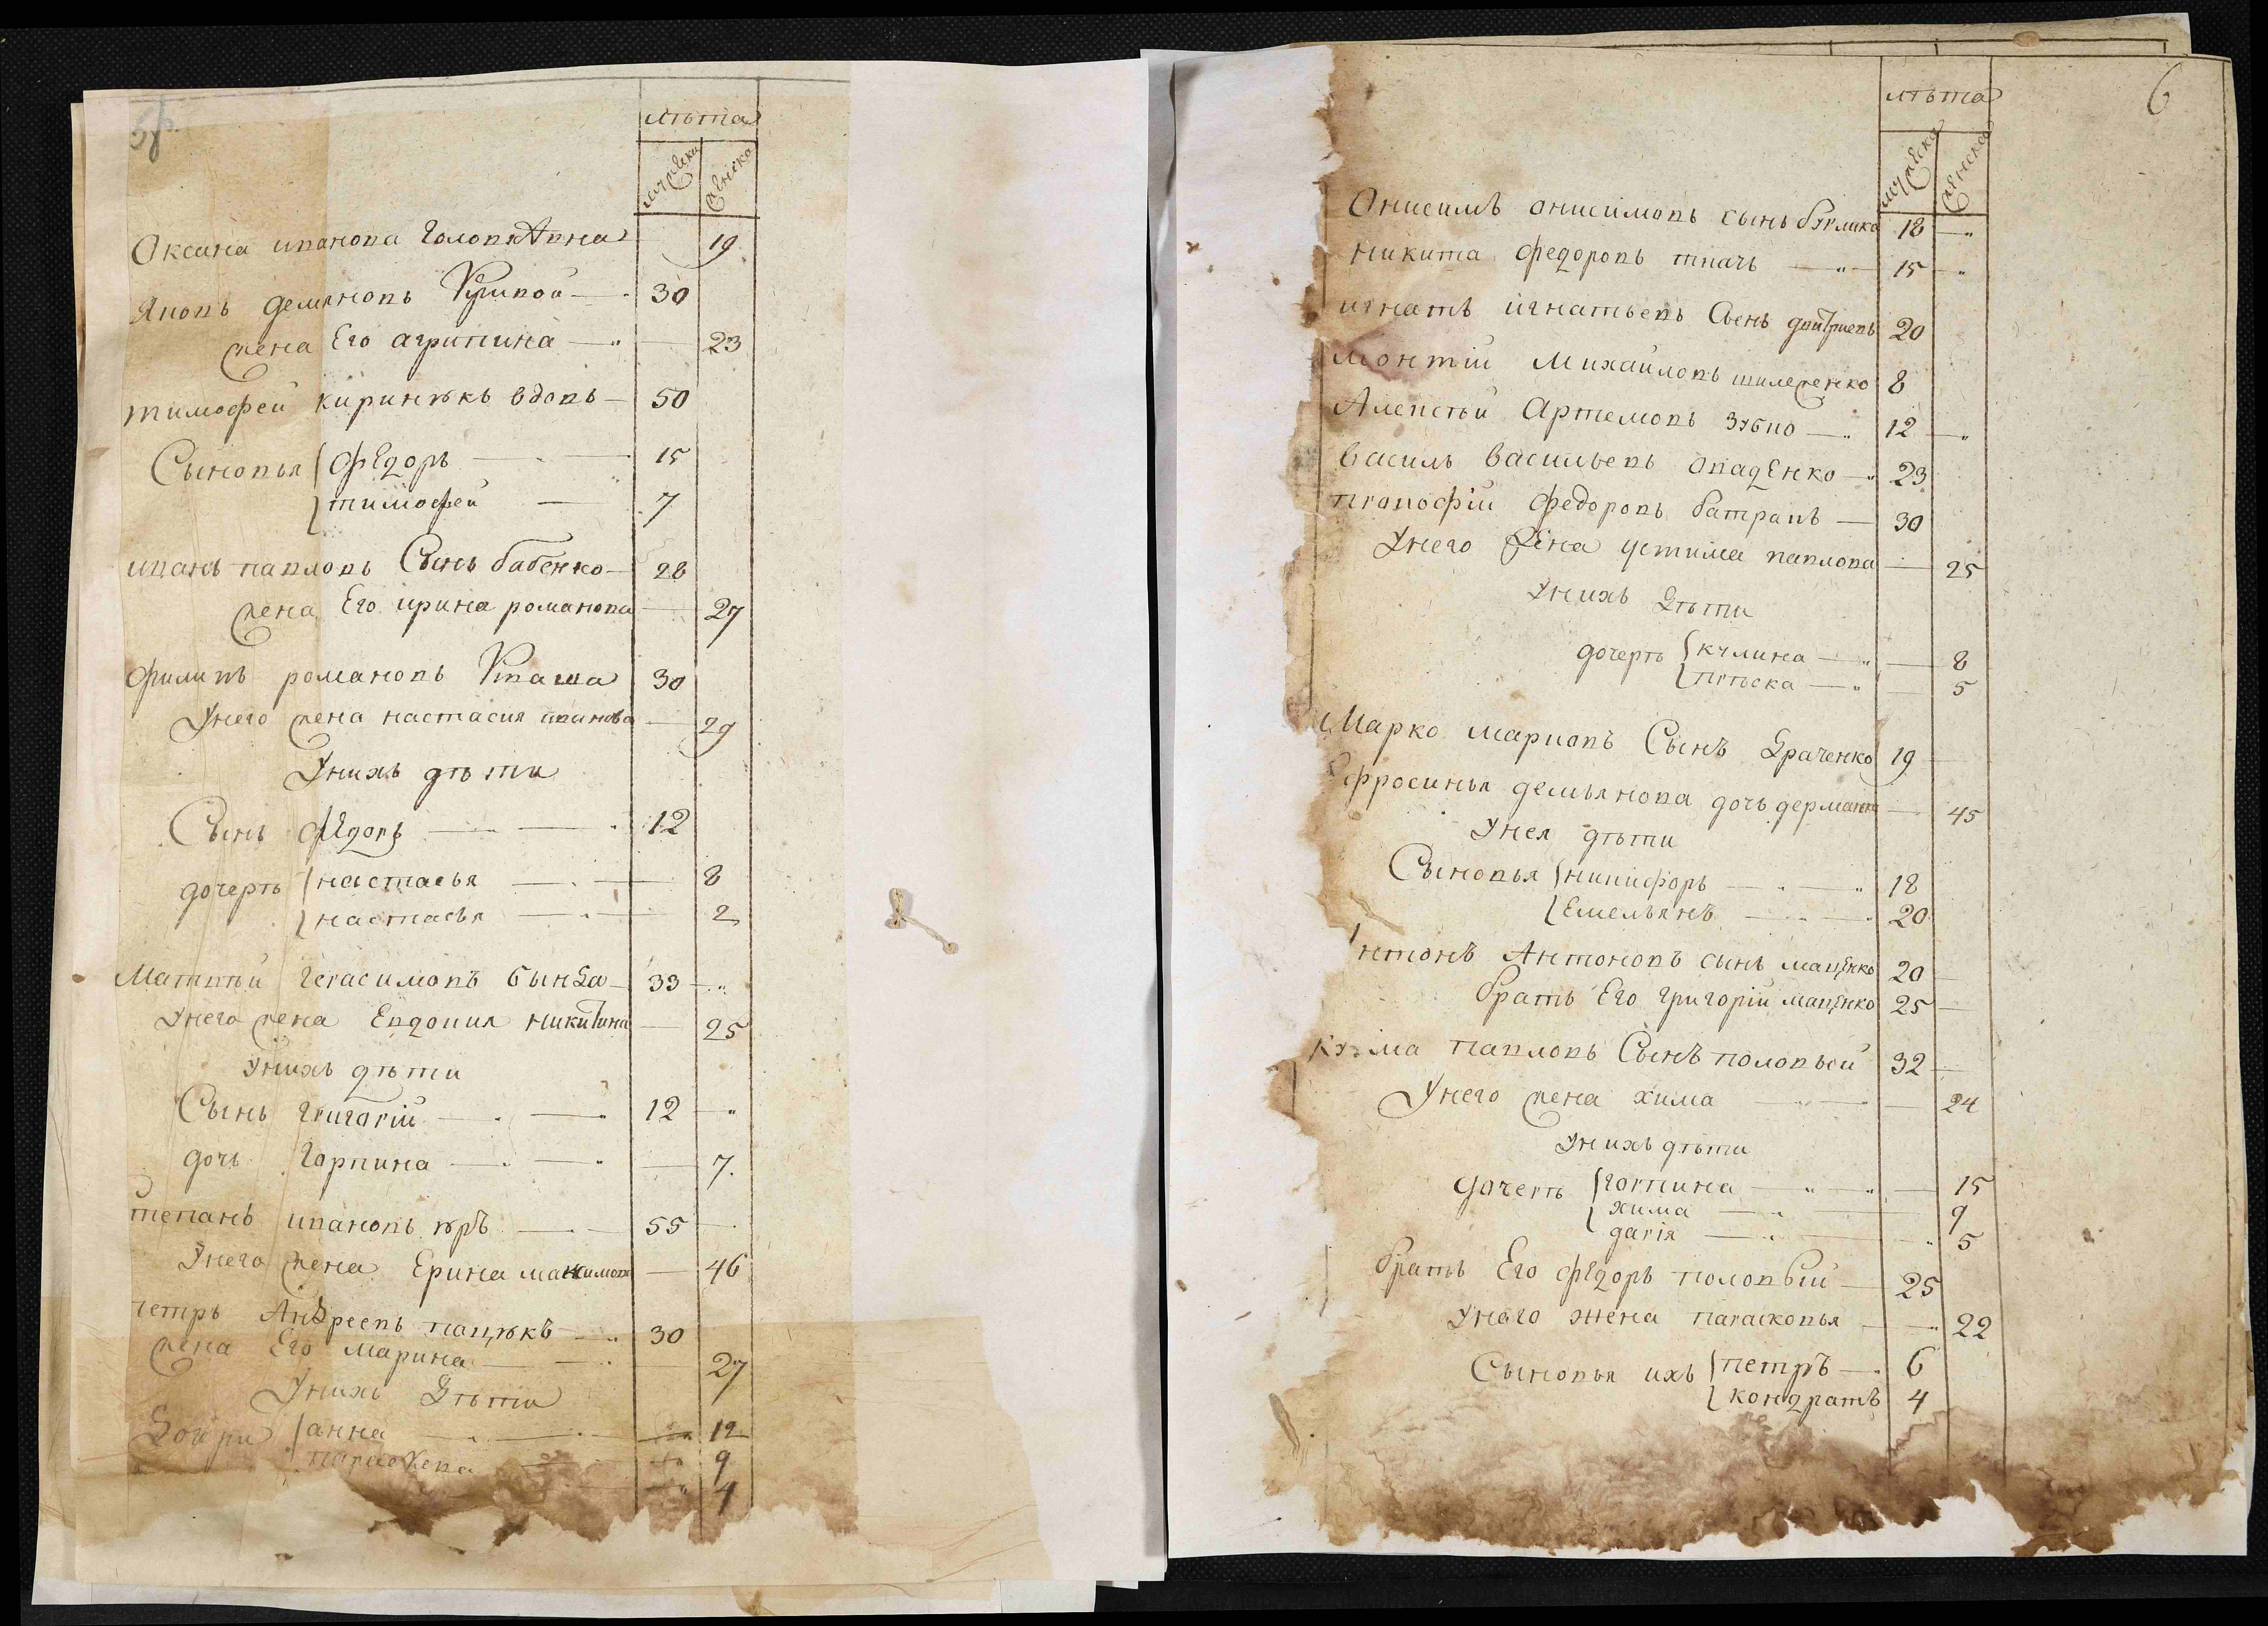 лѣта
мужеска
женска
Оксана иванова Головкивна 19
Яковъ демяновъ Кривой 30
жена Его агрипина 23
тимофей кириюкъ вдовъ 50
Сыновья федоръ 15
тимофей 7
иванъ павловъ Сынъ бабенко 28
жена Его ирина романова 27
филипъ романовъ Кваша 30
Унего жена настасия иванова 29
Унихъ дѣти
Сынъ федоръ 12
дочерѣ настасья 8
настасья 2
Матвѣй герасимовъ 33
Унего жена Евдокия никитина 25
Унихъ дѣти
Сынъ григорій 12
дочь Гарпина 7
тепанъ ивановъ 55
Унего жена Ерина максимова 46
петръ Андреевъ пацюкъ 30
жена Его марина 27
Унихъ Дѣти
Дочери анна 12
параскева 9
4
6
лѣта
мужеска
женска
Онисимъ онисимовъ сынъ 18
никита федоровъ ткачъ 15
игнатъ игнатьевъ Сынъ дмитриевъ 20
монтій Михайловъ шилеженко 8
Алексѣй Артемовъ зубко 12
василь васильевъ опаденко 23
прокофій федоровъ батракъ 30
Унего Жена устима павлова 25
Унихъ Дѣти
дочерѣ кулина 8
прѣска 5
Марко марковъ Сынъ Драченко 19
Ефросинья демьянова дочь 45
Унея дѣти
Сыновья никифоръ 18
Емельянъ 20
нтонъ Антоновъ сынъ маценко 20
братъ Его григорій маценко 25
кузма павловъ Сынъ половъй 32
Унего жена хима 24
Унихъ дѣти
дочерѣ горпина 15
хима 9
дарія 5
братъ Его федоръ половый 25
Унего жена парасковья 22
Сыновья ихъ петръ 6
кондратъ 4